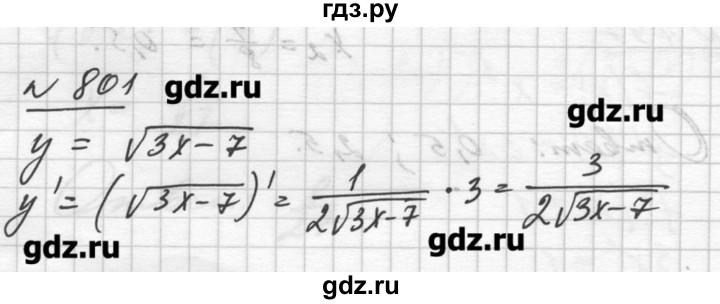 гдз.ру
N 801
gdz.ru
y = √(3x-7)
gdz.ru
y' = (√(3x-7))' = 1/(2√(3x-7)) · 3 = 3/(2√(3x-7))
gdz.ru
gdz.ru
gdz.ru